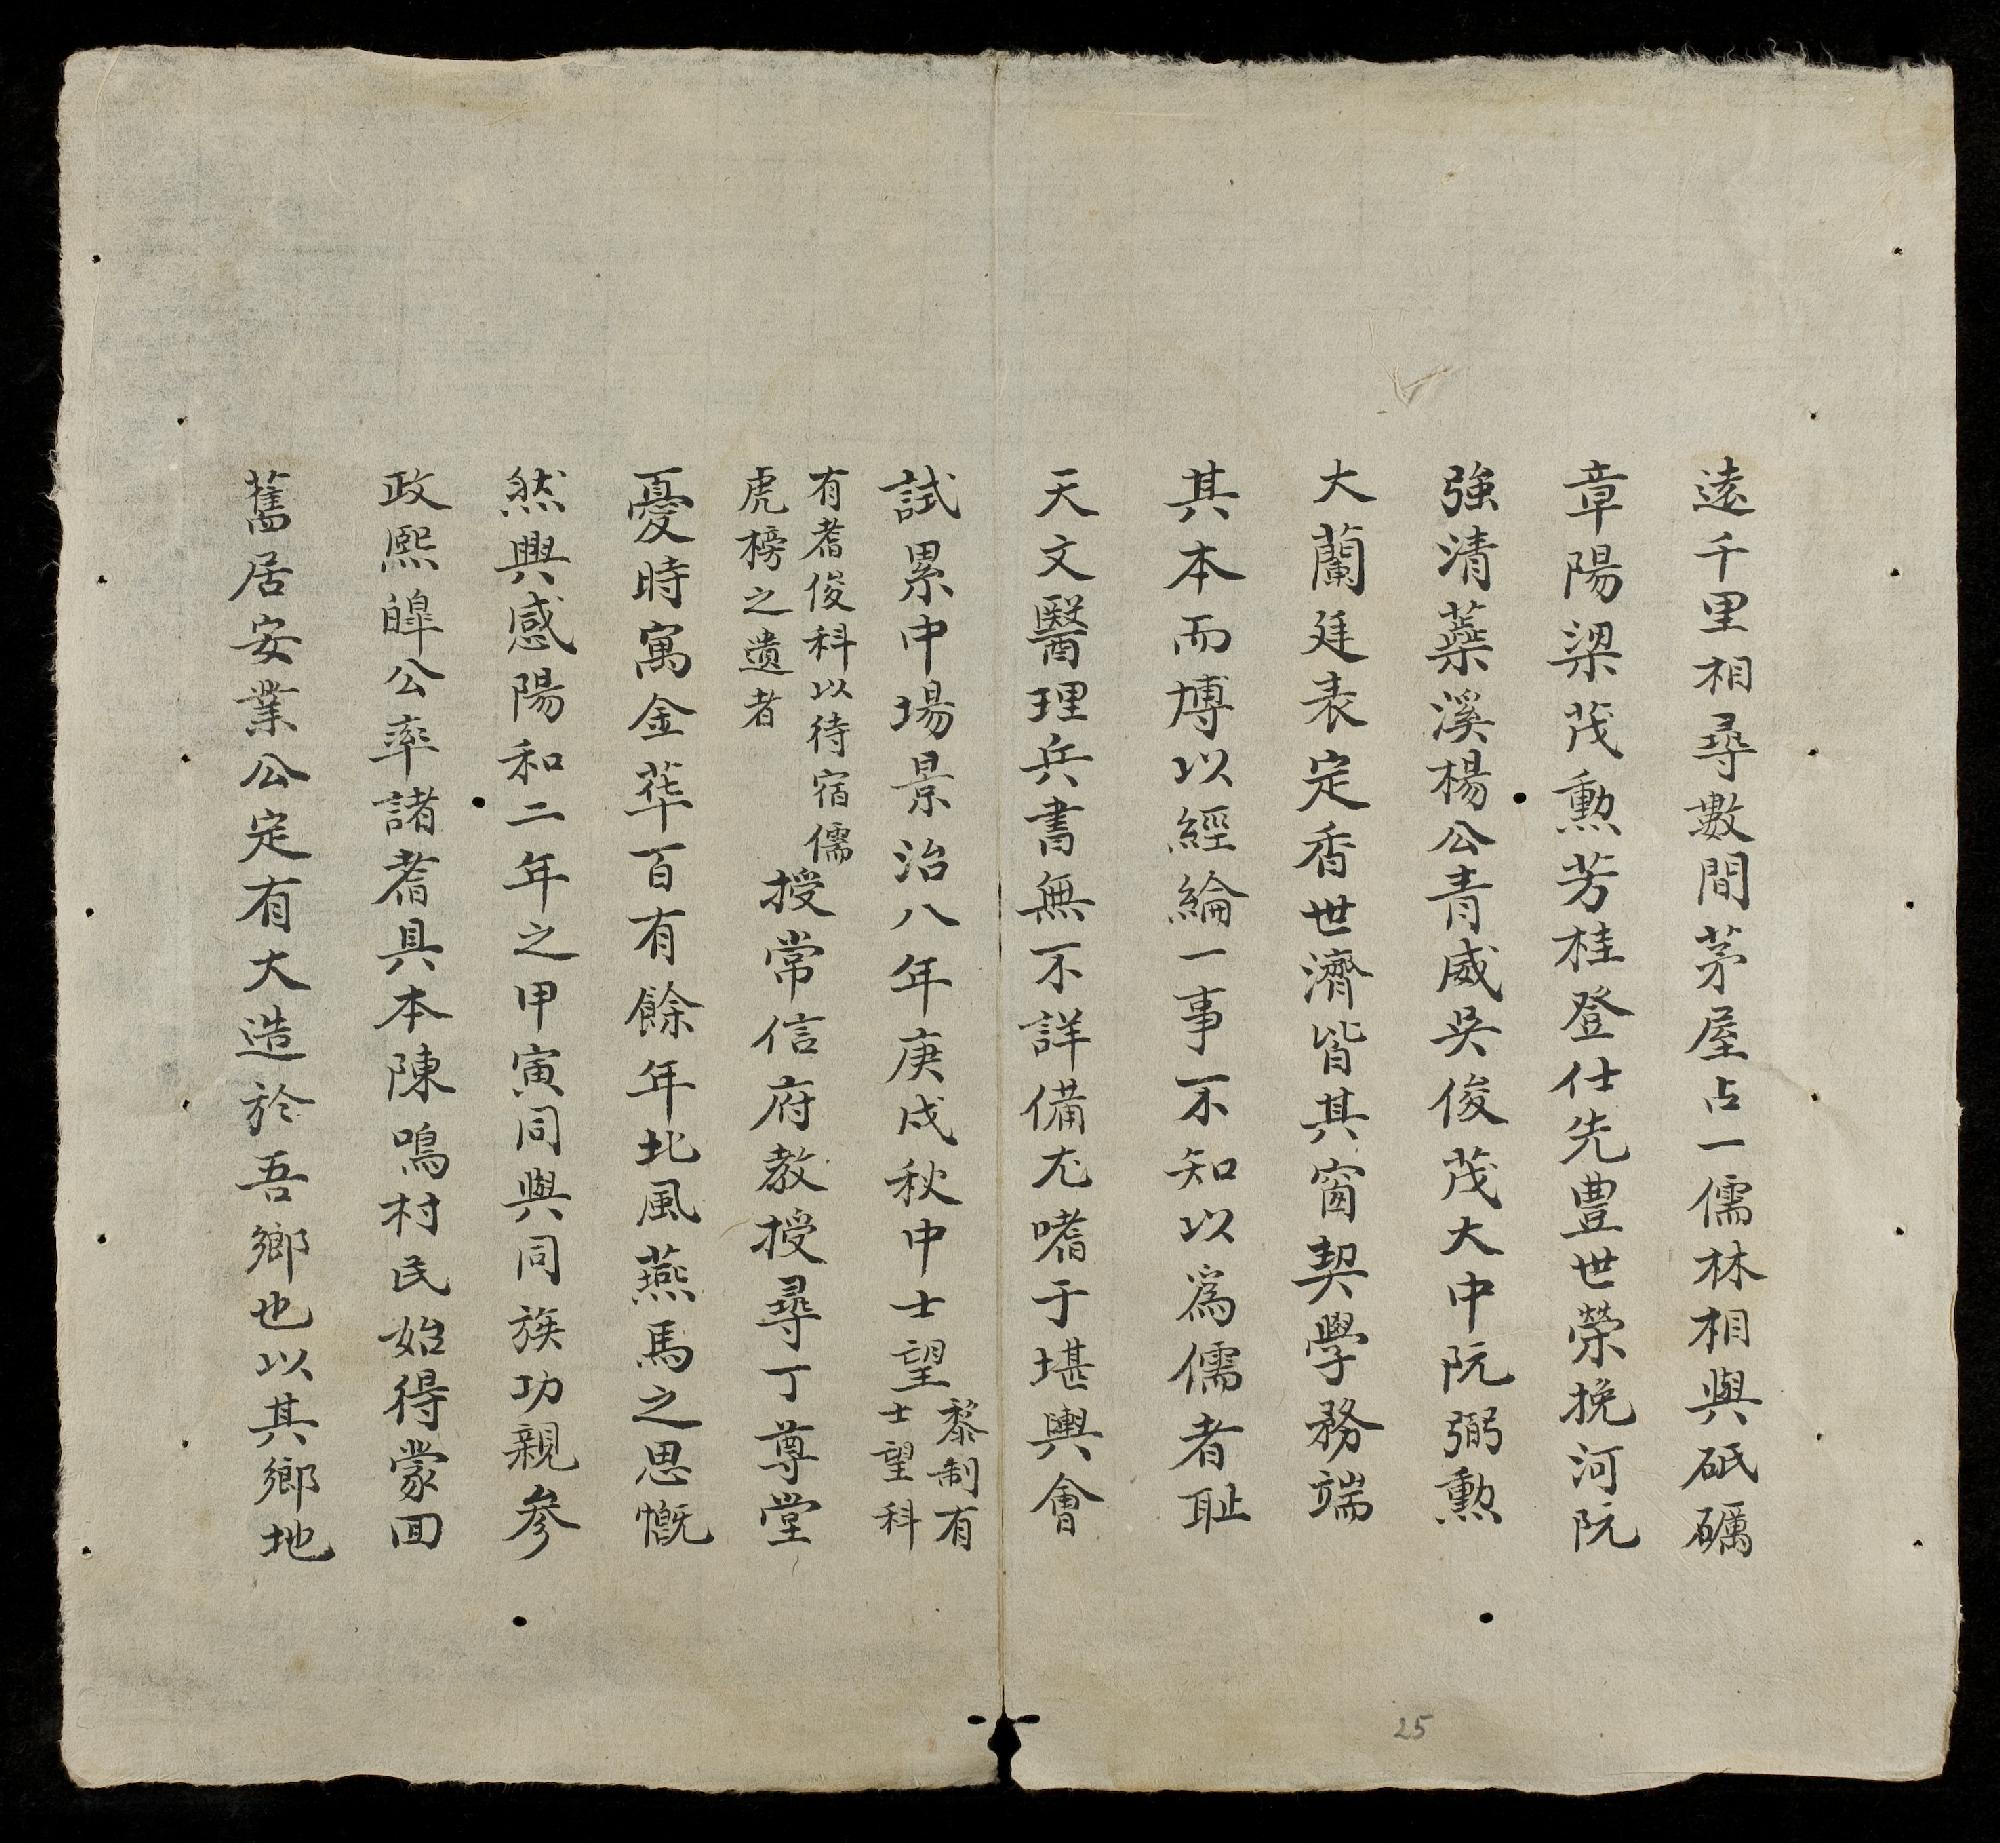 遠千里相尋數間茅屋占一儒林相與砥礪
章陽梁茂勲芳桂登仕先豊世榮挽河阮
強清蘃溪楊公青威吳俊茂大中阮弼勲
大蘭廷表定香世濟皆其窗契學務端
其本而博以經綸一事不知以為儒者耻
天文醫理兵書無不詳備尤嗜于堪輿會
試累中場景治八年庚戌秋中士望
黎制有
士望科
有耆俊科以待宿儒
虎榜之遺者
授常信府教授尋丁尊堂
憂時寓金華百有餘年北風燕馬之思慨
然興感陽和二年之甲寅同與同族功親參
政熙皥公率諸耆具本陳鳴村民始得蒙回
舊居安業公定有大造於吾鄉也以其鄉地
25